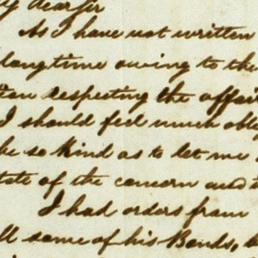 y dear Sir
As I have not written
longtime owing to the
respecting the affai
I should feel much obl
be so kind as to let me
tate of the concern and
I had orders from
ll some of his Bonds,